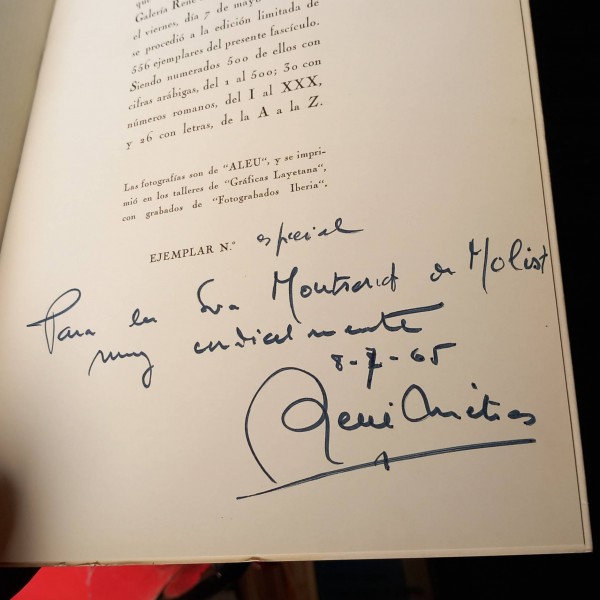 que
Galería René
el viernes, día 7 de mayo
se procedió a la edición limitada de
556 ejemplares del presente fascículo.
Siendo numerados 500 de ellos con
cifras arábigas, del 1 al 500; 30 con
números romanos, del I al XXX,
y 26 con letras, de la A a la Z.
Las fotografías son de "ALEU", y se impri-
mió en los talleres de "Gráficas Layetana",
con grabados de "Fotograbados Iberia".
EJEMPLAR N.º especial
Para la Sra Montserrat de Molist
muy cordialmente
8-7-65
René Métras